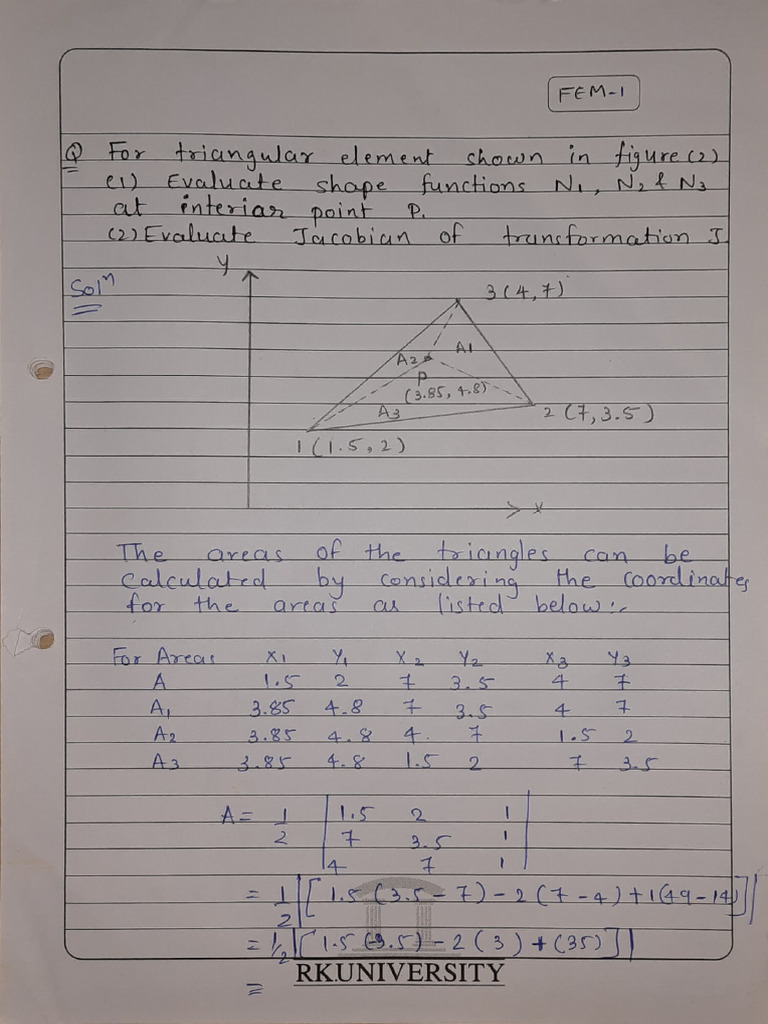 FEM-1
Q For triangular element shown in figure (2)
(1) Evaluate shape functions N1, N2 & N3
at interiar point P.
(2) Evaluate Jacobian of transformation J
Soln
y
3 (4, 7)
A2 A1
P
(3.85, 4.8)
A3
2 (7, 3.5)
1 (1.5, 2)
x
The areas of the triangles can be
calculated by considering the coordinates
for the areas as listed below:-
For Areas X1 Y1 X2 Y2 X3 Y3
A 1.5 2 7 3.5 4 7
A1 3.85 4.8 7 3.5 4 7
A2 3.85 4.8 4. 7 1.5 2
A3 3.85 4.8 1.5 2 7 3.5
A = 1/2 | 1.5 2 1
7 3.5 1
4 7 1 |
= 1/2 |[ 1.5 (3.5 - 7) - 2 (7 - 4) + 1 (49 - 14)]|
= 1/2 |[ 1.5 (-3.5) - 2 (3) + (35) ]|
RK.UNIVERSITY
=